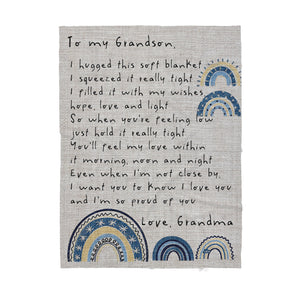 To my Grandson,
I hugged this soft blanket
I squeezed it really tight
I filled it with my wishes
hope, love and light
So when you're feeling low
just hold it really tight
You'll feel my love within
it morning, noon and night
Even when I'm not close by,
I want you to know I love you
and I'm so proud of you
Love, Grandma